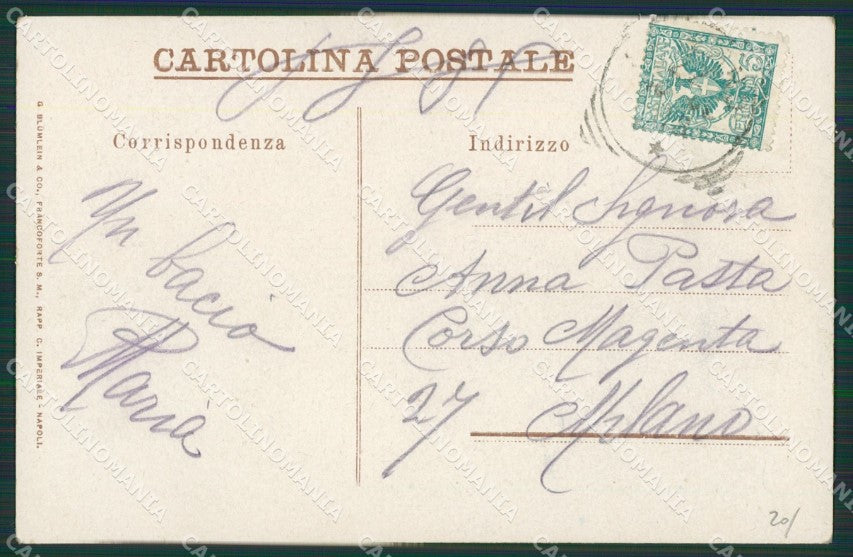 CARTOLINA POSTALE
Corrispondenza
Indirizzo
Un bacio
Maria
Gentil Signora
Anna Pasta
Corso Magenta
27 Milano
G. BLÜMLEIN & CO., FRANCOFORTE S. M., RAPP. C. IMPERIALE - NAPOLI.
20/
CARTOLINOMANIA